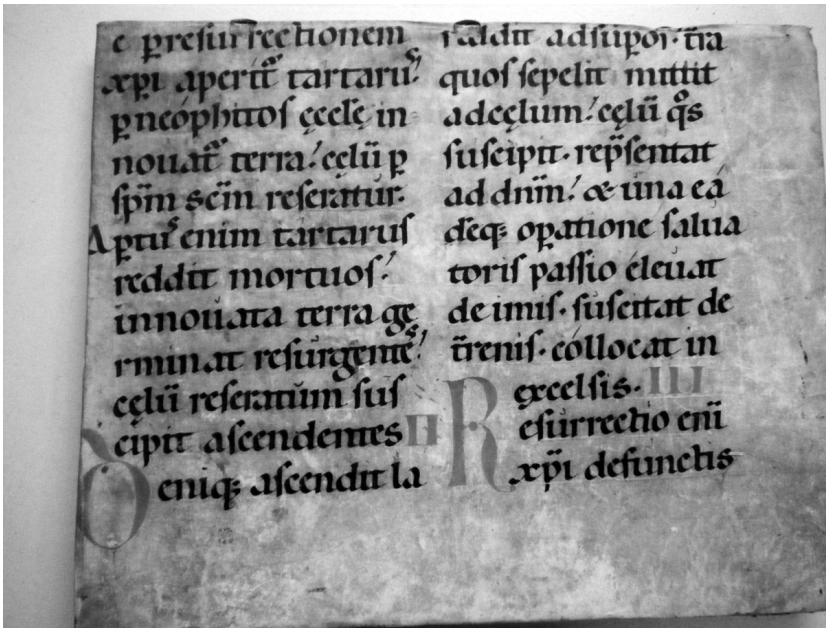 e ꝑresurrectionem
xpi aperit᷑ tartarus᷒
ꝑneophitos ęcclę in
nouat᷑ terra. cęlū ꝑ
spm̄ scm̄ reseratur.
Aꝑtus enim tartarus
reddit mortuos.
innouata terra ge
rminat resurgentes.
cęlū reseratum sus
cipit ascendentes II
Deniq; ascendit la
reddit ad suꝑos. t̄ra
quos sepelit mittit
ad cęlum. cęlū qͦs
suscipit. rep̄sentat
ad dnm̄. & una ea
deq; oꝑatione salua
toris passio eleuat
de imis. suscitat de
t̄renis. collocat in
excelsis. III
Resurrectio eni̅
xp̄i defunctis